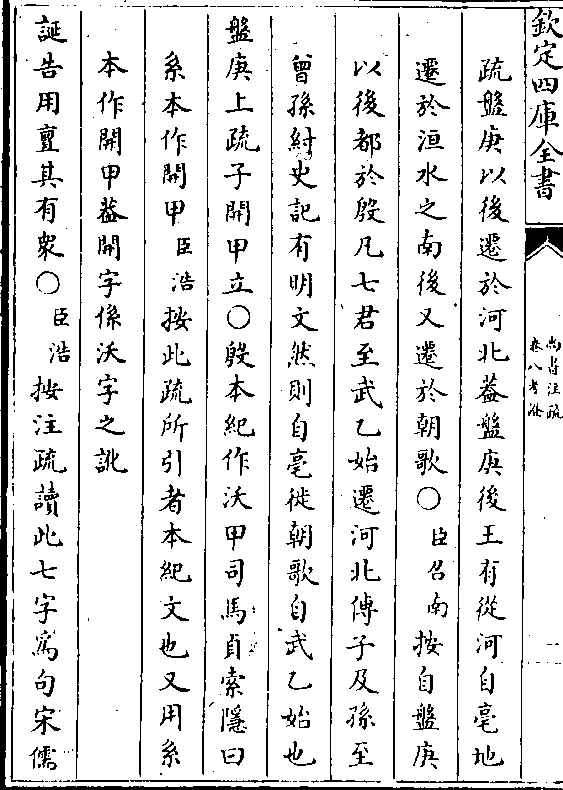 欽定四庫全書
尚書注疏
卷八考證
一
疏盤庚以後遷於河北葢盤庚後王有從河自亳地
遷於洹水之南後又遷於朝歌○臣召南按自盤庚
以後都於殷凡七君至武乙始遷河北傳子及孫至
曾孫紂史記有明文然則自亳徙朝歌自武乙始也
盤庚上疏子開甲立○殷本紀作沃甲司馬貞索隱曰
系本作開甲臣浩按此疏所引者本紀文也又用系
本作開甲葢開字係沃字之訛
誕告用亶其有衆○臣浩按注疏讀此七字為句宋儒